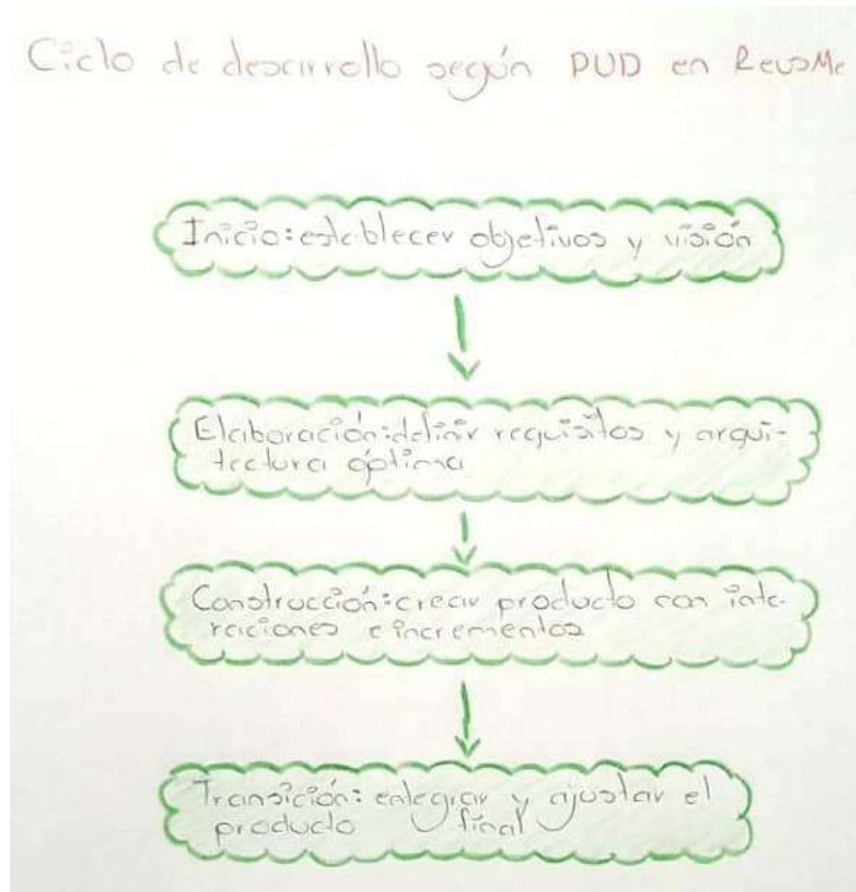 Ciclo de desarrollo según PUD en ReusMe
Inicio: establecer objetivos y visión
Elaboración: definir requisitos y arqui-
tectura óptima
Construcción: crear producto con inte-
raciones e incrementos
Transición: entegrar y ajustar el
producto final